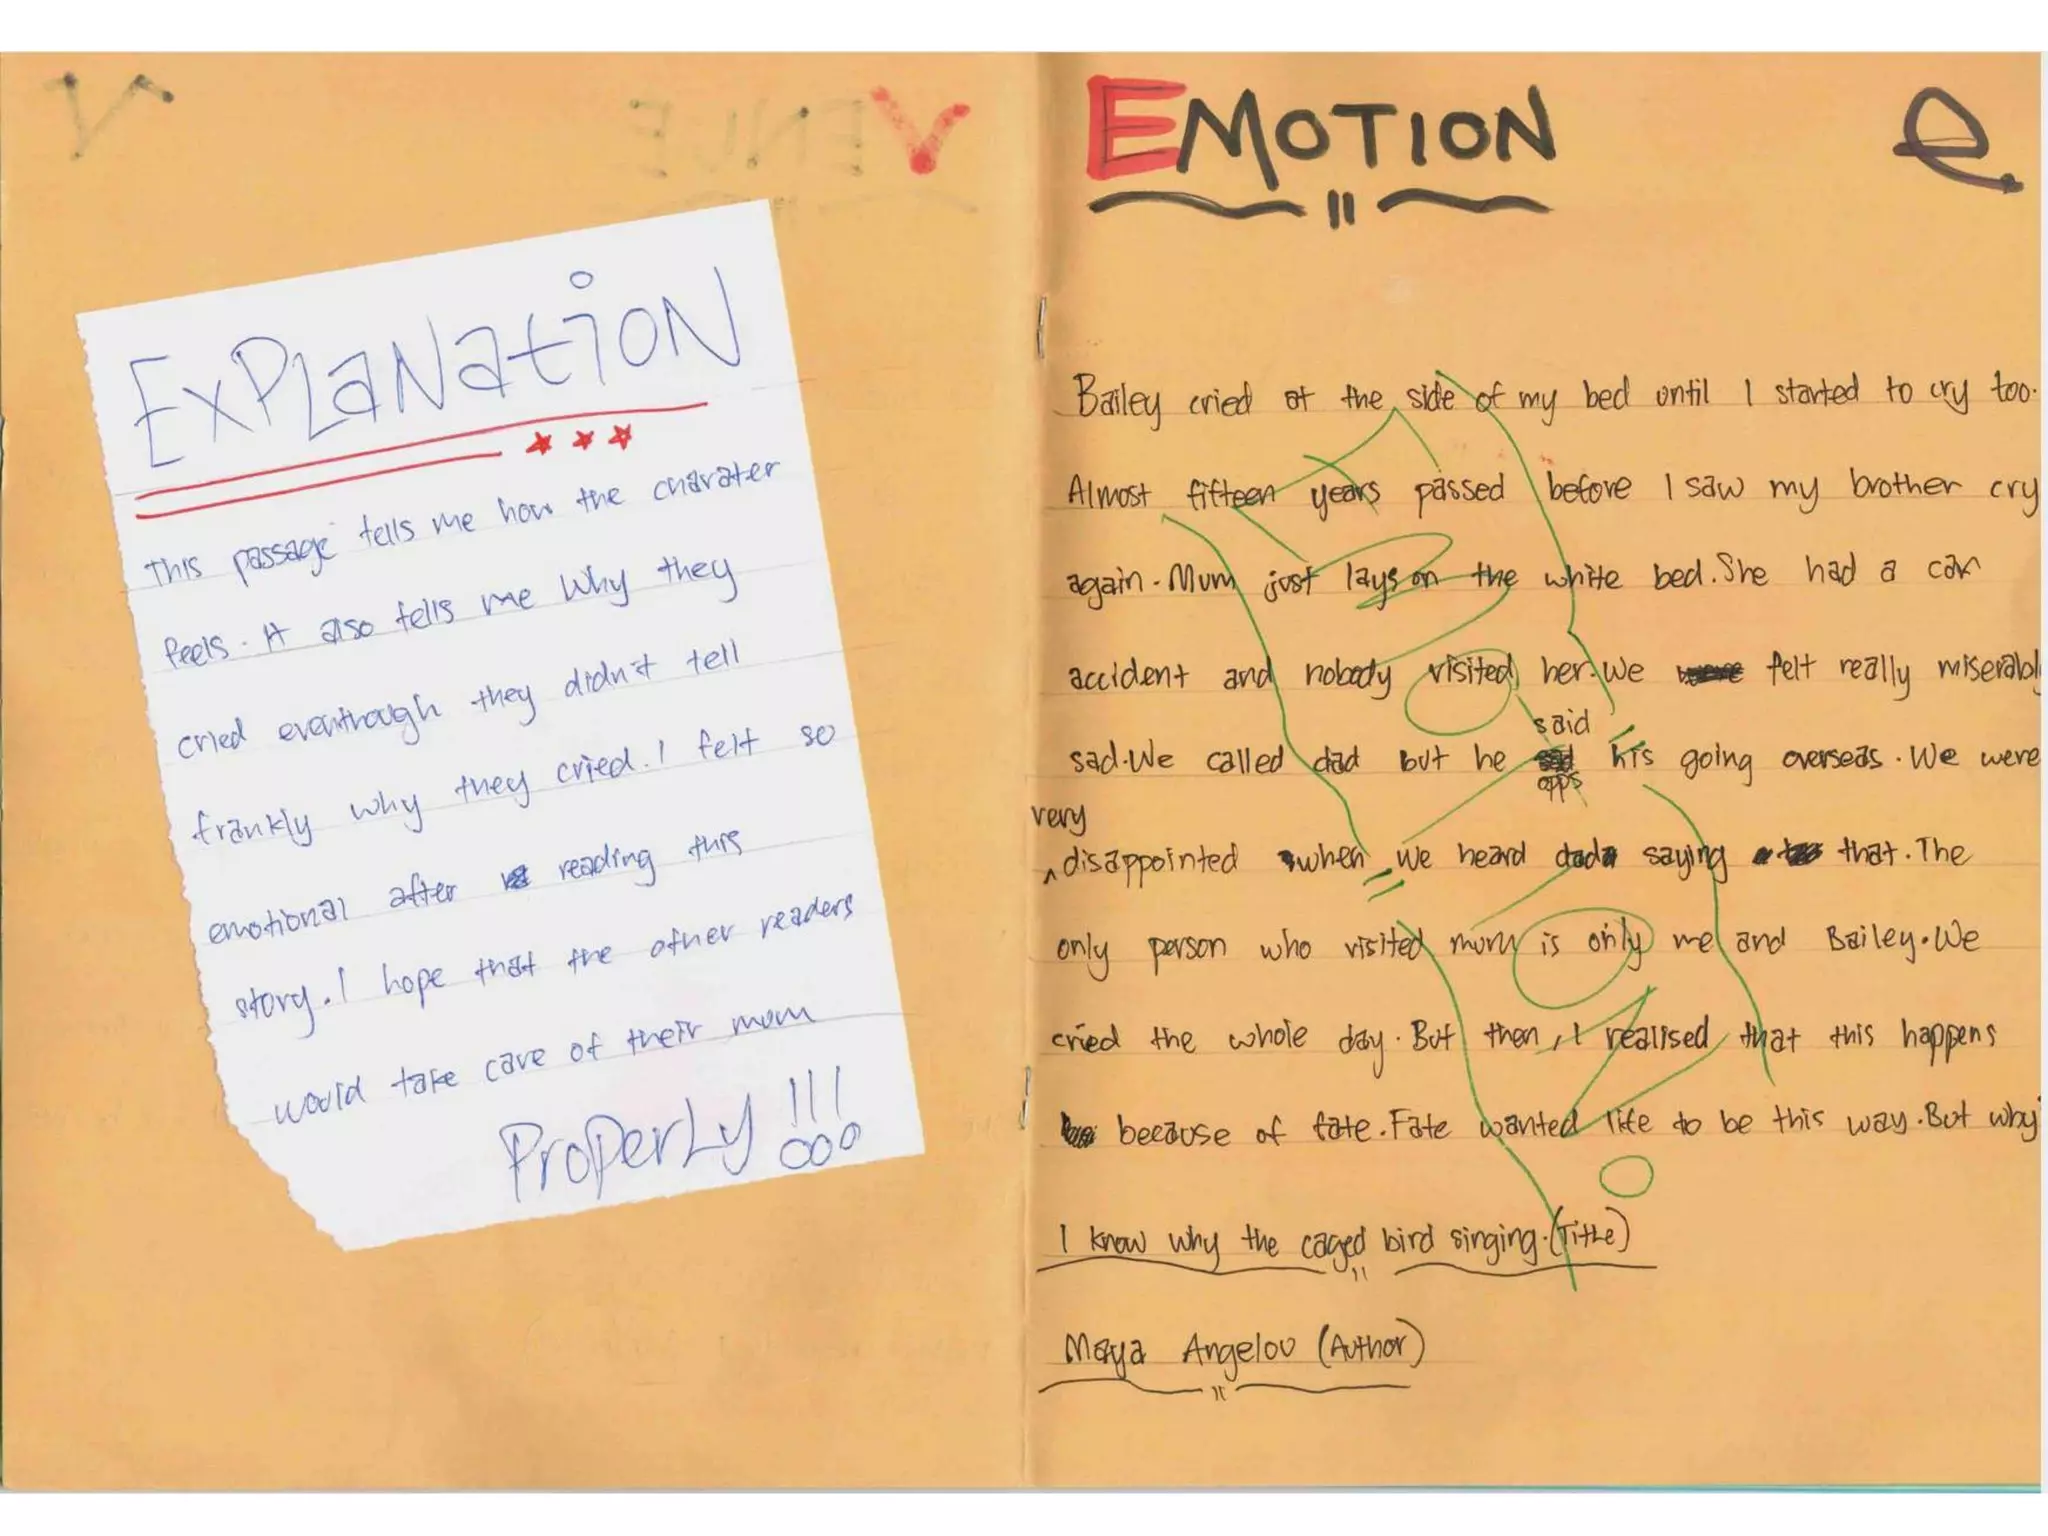 VENUE
EXPLaNatioN
This passage tells me how the charater
feels. It also tells me why they
cried eventhough they didn't tell
frankly why they cried. I felt so
emotional after reading this
story. I hope that the other readers
would take care of their mom
ProPerLy !!!
EMOTION
e
Bailey cried at the side of my bed until I started to cry too.
Almost fifteen years passed before I saw my brother cry
again. Mum just lays on the white bed. She had a car
accident and nobody visited her. We felt really miserably
said
sad. We called dad but he his going overseas. We were
opps
very
disappointed when we heard dad saying that. The
only person who visited mum is only me and Bailey. We
cried the whole day. But then, I realised that this happens
because of fate. Fate wanted life to be this way. But why
I know why the caged bird singing. (Title)
Maya Angelou (Author)